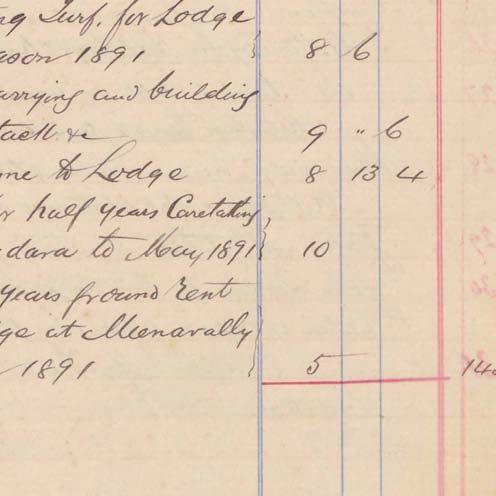 Turf for Lodge
1891 8 6
and building
stack &c 9 " 6
to Lodge 8 13 4
half years Caretaking
to May 1891 10
years ground rent
at Meenavally
1891 5